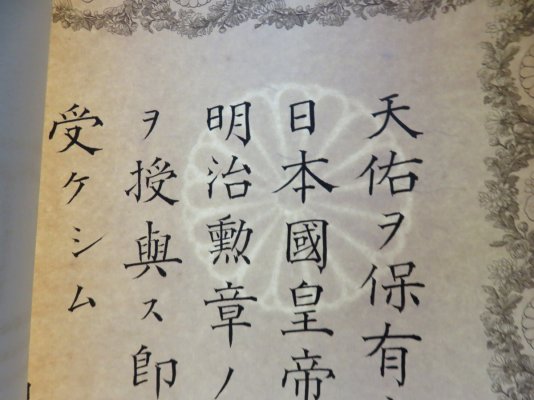 天佑ヲ保有
日本國皇帝
明治勲章ノ
ヲ授與ス即
受ケシム